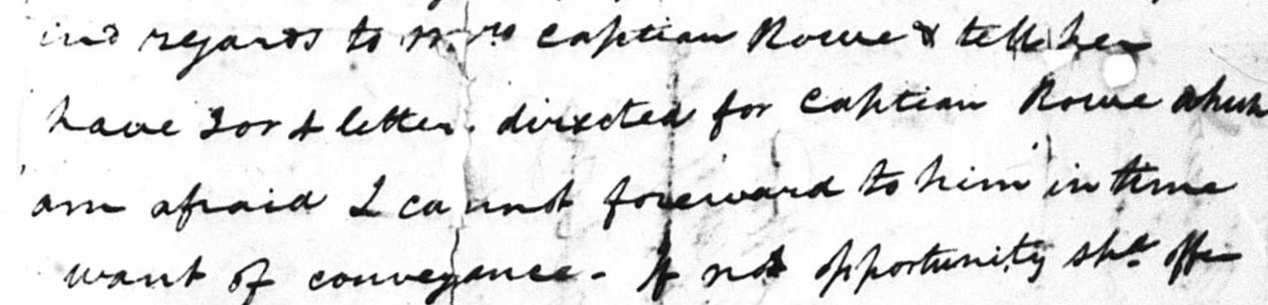 ind regards to Mrs Captian Rowe & tell her
have 3 or 4 letter directed for Captian Rowe which
am afraid I cannot foreward to him in time
want of conveyance - If not opportunity shd offer